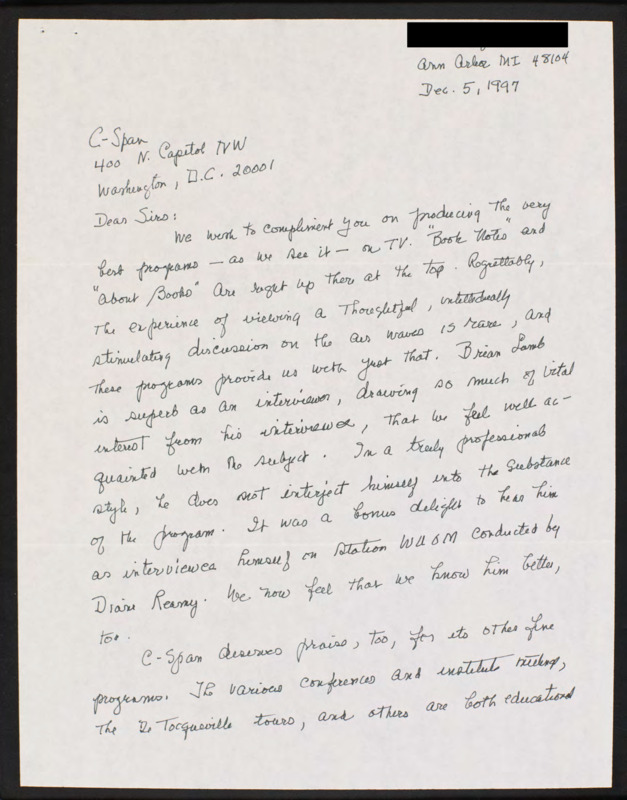 Ann Arbor MI 48104
Dec. 5, 1997
C-Span
400 N. Capitol NW
Washington, D.C. 20001
Dear Sirs:
We wish to compliment you on producing the very
best programs — as we see it — on TV. "Book Notes" and
"About Books" are right up there at the top. Regrettably,
the experience of viewing a thoughtful, intellectually
stimulating discussion on the air waves is rare, and
these programs provide us with just that. Brian Lamb
is superb as an interviewer, drawing so much of vital
interest from his interviewee, that we feel well ac-
quainted with the subject. In a truly professional
style, he does not interject himself into the substance
of the program. It was a bonus delight to hear him
as interviewee himself on Station WUOM conducted by
Diane Reamy. We now feel that we know him better,
too.
C-Span deserves praise, too, for its other fine
programs. The various conferences and institute meetings,
the De Tocqueville tours, and others are both educational